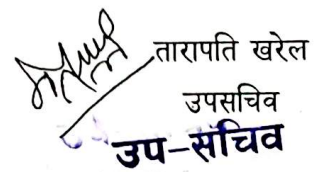 तारापति खरेल
उपसचिव
उप-सचिव